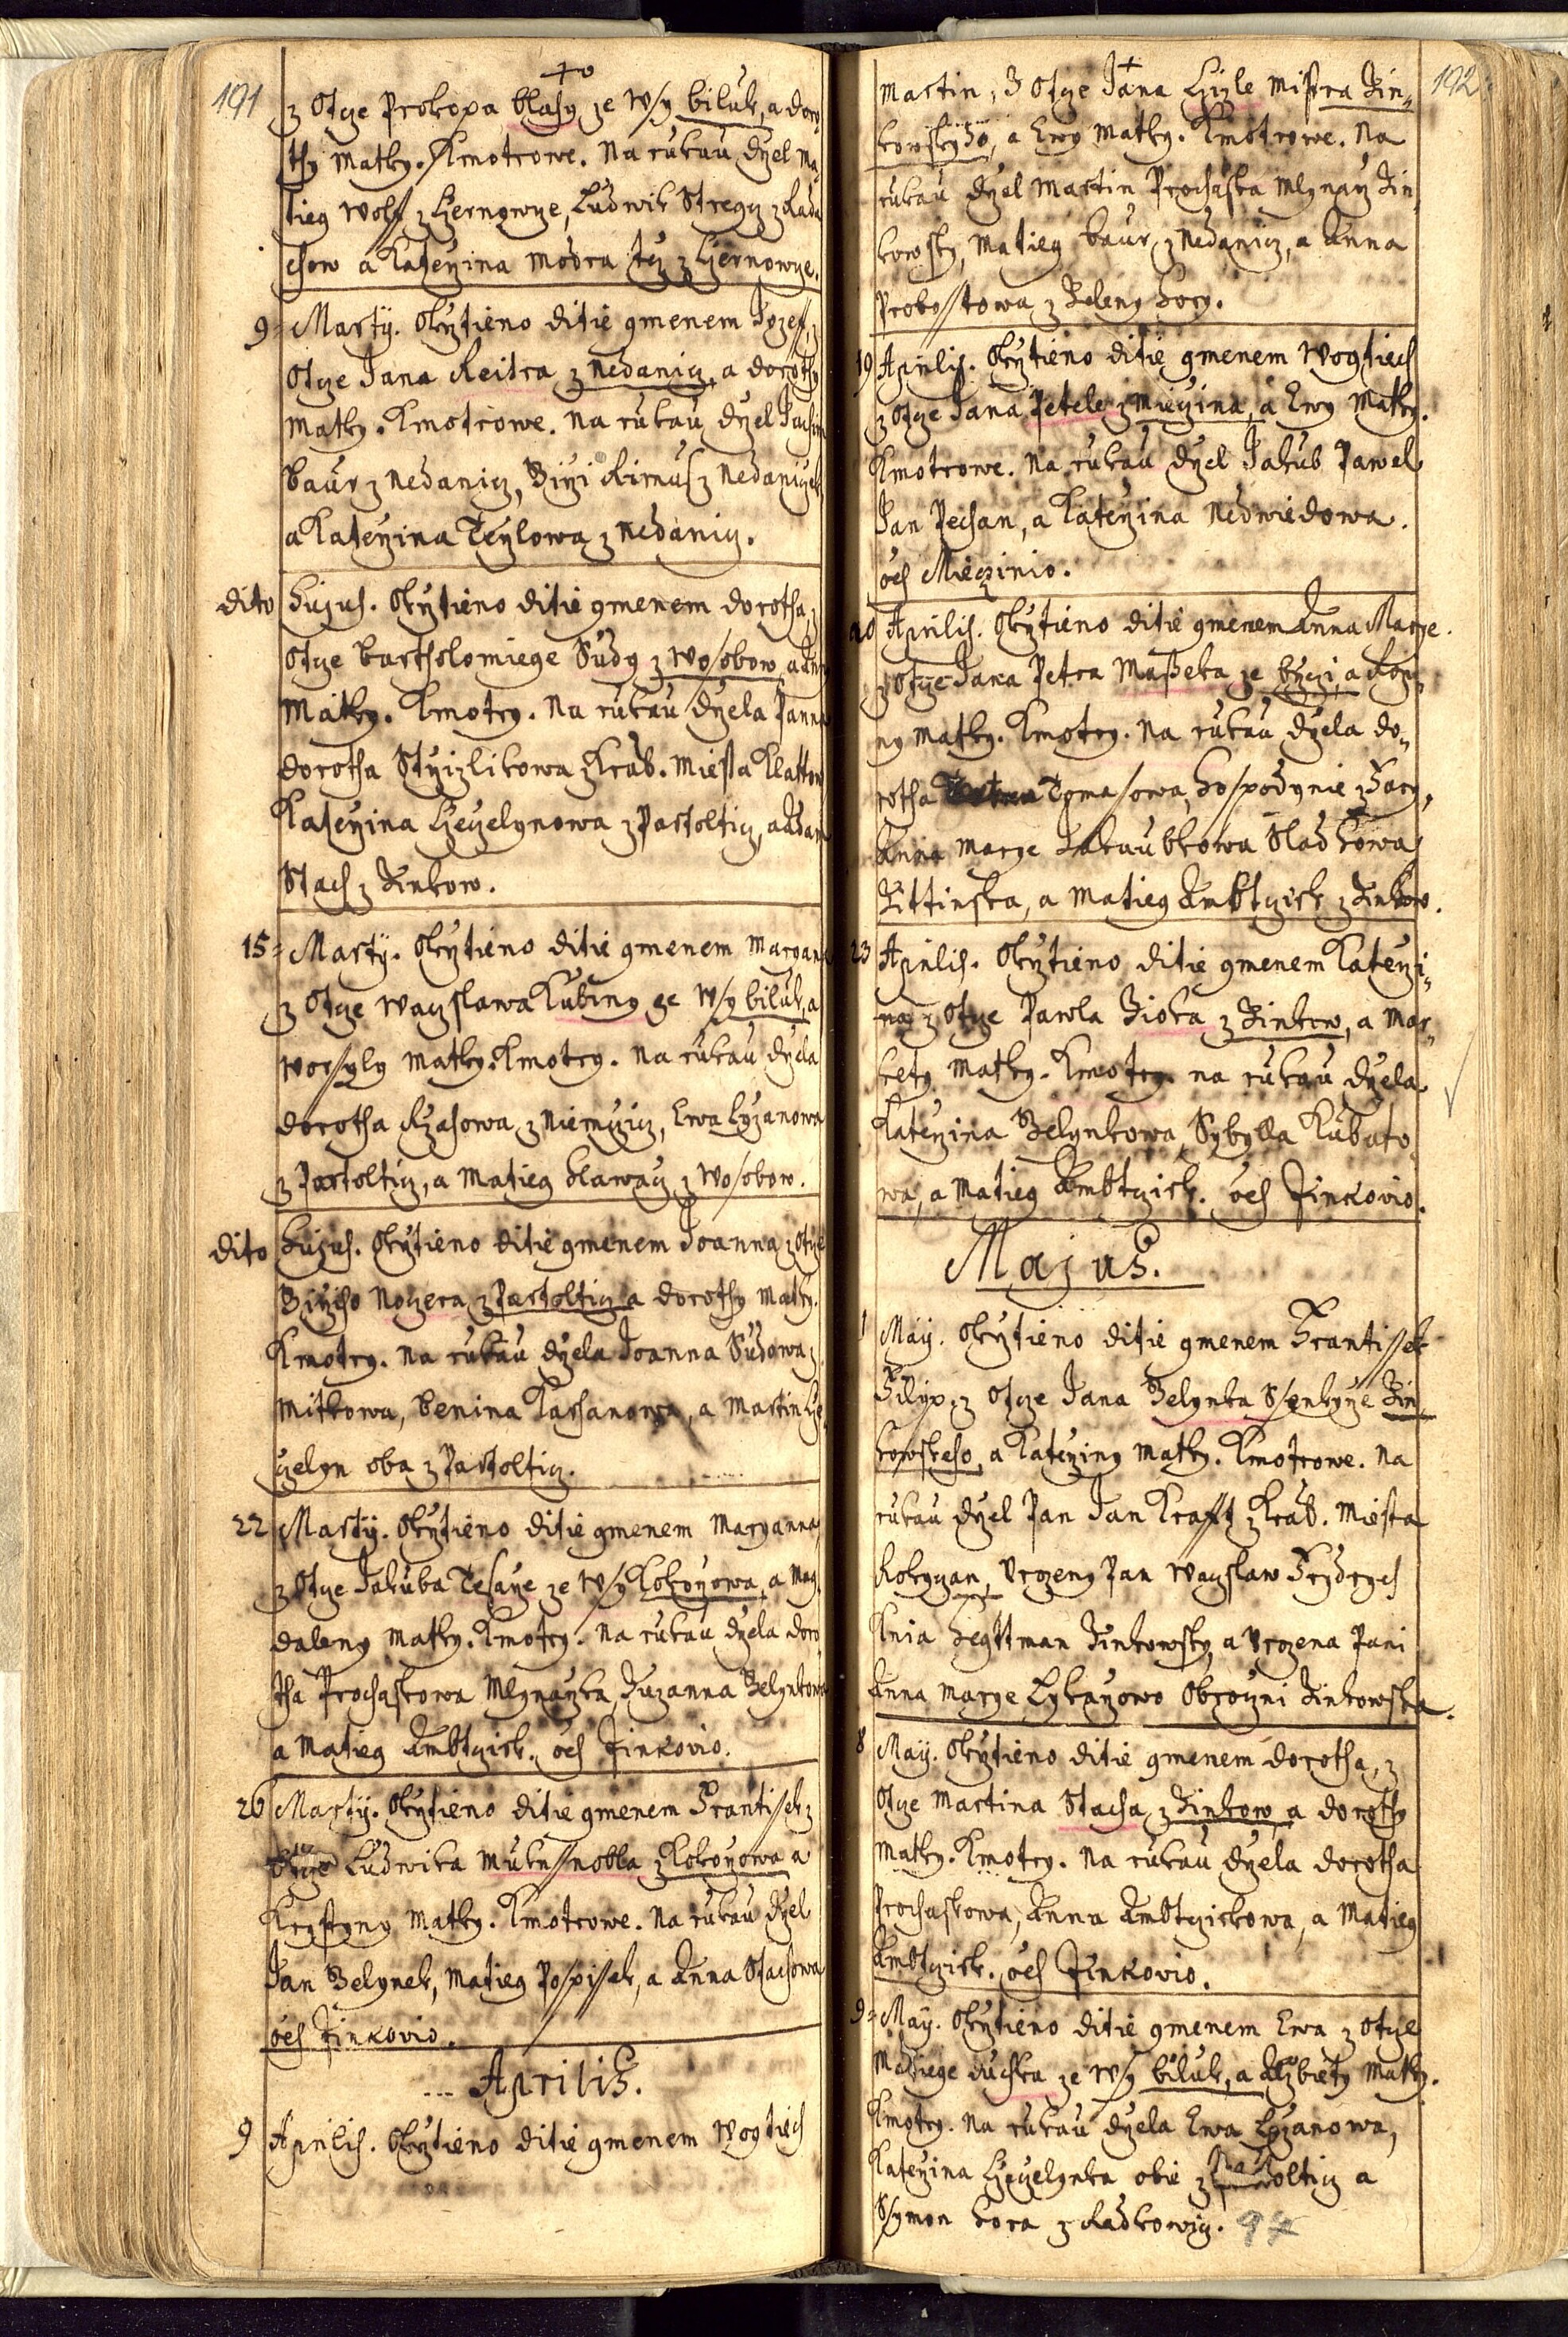 191
z Otcze Prokopa blasy ze Wsy biluk, a doro
thy Matky. Kmotrowe. Na rukau drzel Ma
tieg Wolf z Czernowcze, Ludwik
chow a Katerzina Modra tez z Czernowcze.
9 Martij. Okrztieno ditie gmenem Jozeff, z
Otcze Jana Reitra z Nedanicz, a dorothy
Matky. Kmotrowe. Na rukau drzel Jachim
baur z Nedanicz, Girzi Rimus z Nedaniczek
a Katerzina Teylowa z Nedanicz.
dito hujus. Okrztieno ditie gmenem dorotha, z
Otcze Bartholomiege Sudy z Wosobow, a Anny
Matky. Kmotry. Na rukau drzela Panna
dorotha Strzizlikowa z Krab. Miesta Klattow
Katerzina Czeczelynowa z Partolticz, a Adam
Stach z Zinkow.
15 Martij. Okrztieno ditie gmenem Maryana
z Otcze Waczslawa Kubiny ze Wsy biluk, a
Worssyly Matky. Kmotry. Na rukau drzela
dorotha z Niemczicz, Ewa Lyzanowa
z Partolticz, a Matieg hlawacz z Wosobow.
dito hujus. Okrztieno ditie gmenem Joanna z Otcze
Girziho z Partolticz a dorothy Matky.
Kmotry. Na rukau drzela Joanna Sudowa z
Mitkowa, benina, a Martin Cze
czelyn oba z Partolticz.
22 Martij. Okrztieno ditie gmenem Maryanna
z Otcze Jakuba Tesarze ze Wsy Kokorzowa, a Mag
daleny Matky. Kmotry. Na rukau drzela doro
tha Prochaskowa Mlynarzka, Zuzanna Zelynkowa
a Matieg Ambtczich. oes Zinkovio.
26 Martij. Okrztieno ditie gmenem Frantissek z
Otcze Ludwika z Kokorzowa a
Krystyny Matky. Kmotrowe. Na rukau drzel
Jan Zelynek, Matieg Pospissek, a Anna Stachowa
oes Zinkovio.
Aprilis.
9 Aprilis. Okrztieno ditie gmenem Wogtiech
192
Martin, z Otcze Jana Czizle Mistra Zin„
kowskyho, a Ewy Matky. Kmotrowe. Na
rukau drzel Martin Prochaska Mlynarz Zin„
kowsky, Matieg baur z Nedanicz, a Anna
Probosstowa z Zeleny hory.
19 Aprilis. Okrztieno ditie gmenem Wogtiech
z Otcze Jana Petele z Mieczina, a Ewy Matky.
Kmotrowe. Na rukau drzel Jakub Pawel
Jan Pechan, a Katerzina Nedwiedowa.
oes Mieczinio.
20 Aprilis. Okrztieno ditie gmenem Anna Marye.
z Otcze Jana Petra Maßeka ze, a Rozy„
ny Matky. Kmotry. Na rukau drzela do„
rotha Tomasowa hospodynie z Fary,
Anna Marye Jakaubkowa Sladkowa
Zittinska, a Matieg Ambtczich z Zinkow.
23 Aprilis. Okrztieno ditie gmenem Katerzi„
na z Otcze Pawla Zioka z Zinkow, a Mar„
kety Matky. Kmotry na rukau drzela
Katerzina Zelynkowa, Sybylla Kubato„
wa, a Matieg Ambtczich. oes Zinkovio.
Majus.
1 Maÿ. Okrztieno ditie gmenem Frantissek
Filip, z Otcze Jana Zelynka Ssenkyrze Zin
kowskeho, a Katerziny Matky. Kmotrowe. Na
rukau drzel Pan Jan Krafft z Krab. Miesta
Rokyczan, Vrozeny Pan Waczslaw Frydrych
Knia hegttman Zinkowsky, a Vrozena Pani
Anna Marye Obrocni Zinkowska.
8 Maÿ. Okrztieno ditie gmenem dorotha, z
Otcze Martina Stacha z Zinkow, a dorothy
Matky. Kmotry. Na rukau drzela dorotha
Prochaskowa, Anna Ambtczichowa, a Matieg
Ambtczich. oes Zinkovio.
9 Maÿ. Okrztieno ditie gmenem Ewa z Otcze
Matiege duchka ze Wsy biluk, a Alzbiety Matky.
Kmotry. Na rukau drzela Ewa Lyzanowa,
Katerzina Czeczelynka obie z Partolticz a
Ssymon hora z Radkowicz. 97